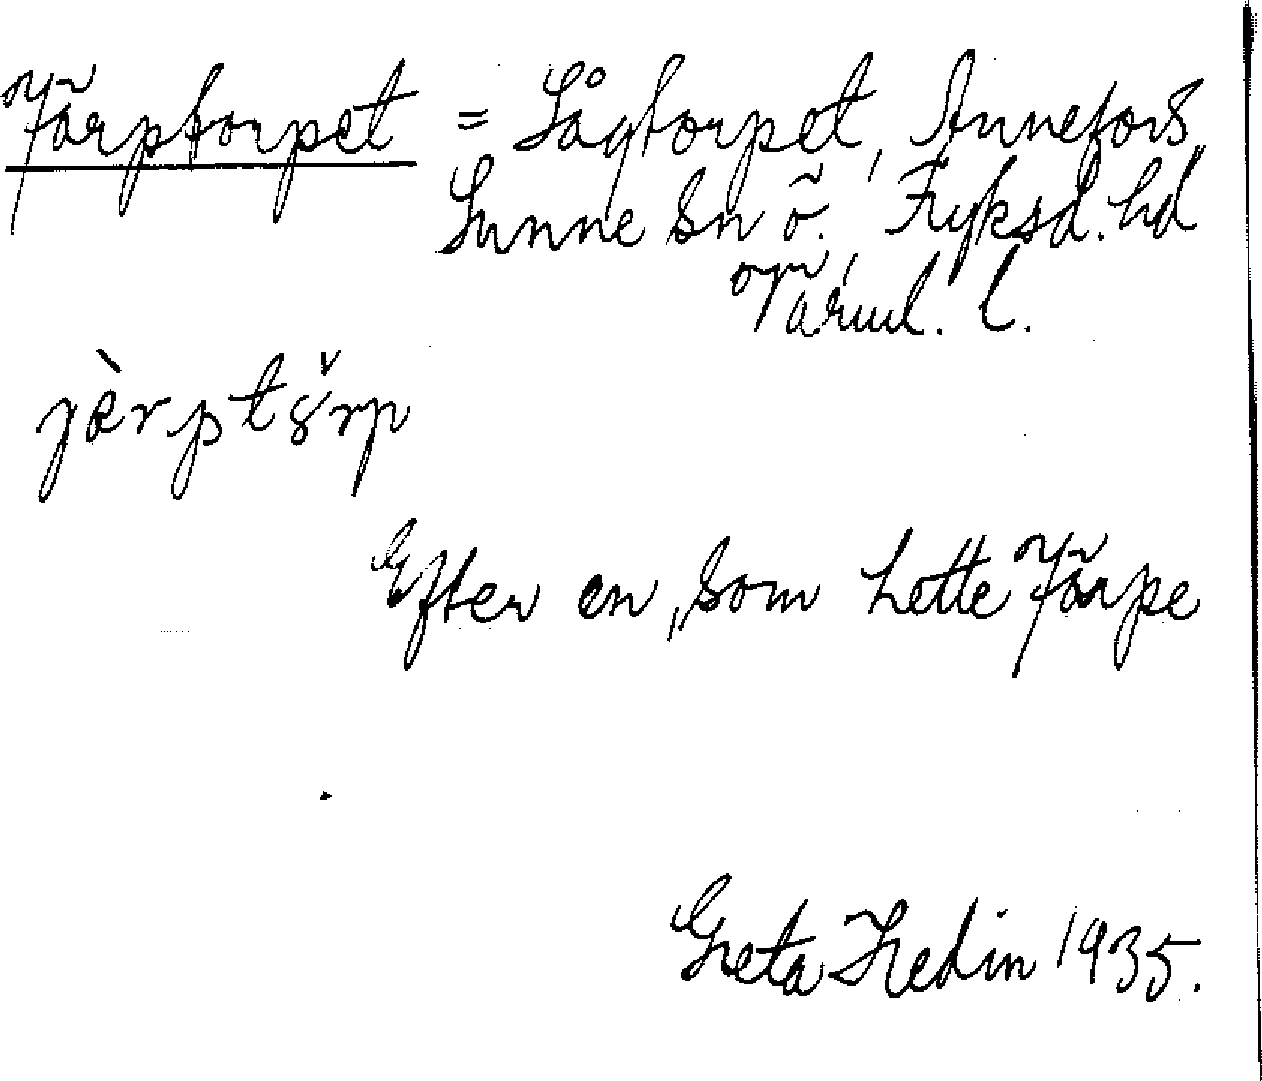 Järptorpet = Sågtorpet, Annefors,
Sunne sn ö. Fryksd. hd
Värml. l.
jèrptŏrp
Efter en, som hette Järpe
Greta Hedin 1935.